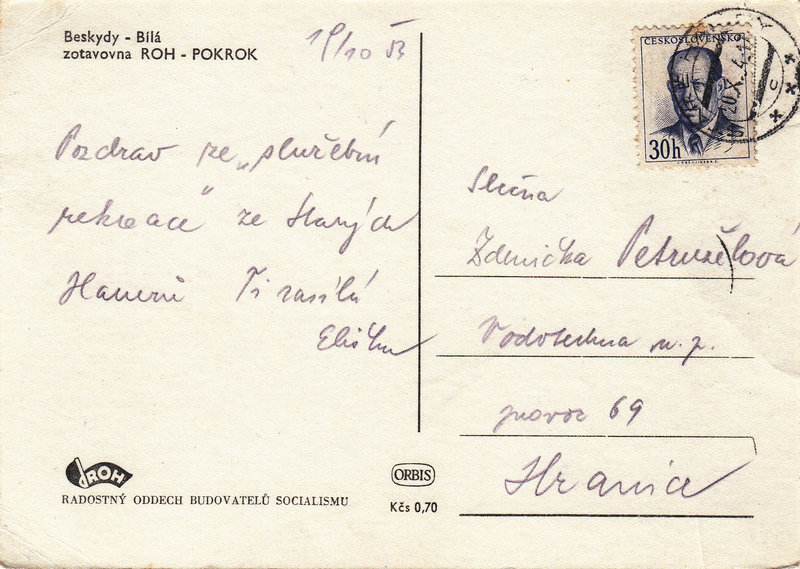 Beskydy - Bílá
zotavovna ROH - POKROK
19/10 53
Pozdrav ze „služební
rekreace" ze Starých
Hamrů Ti zasílá
Eliška
ČESKOSLOVENSKO
30h
Slečna
Zdenička Petruželová
Vodotechna n. p.
provoz 69
Hranice
ROH
RADOSTNÝ ODDECH BUDOVATELŮ SOCIALISMU
ORBIS
Kčs 0,70